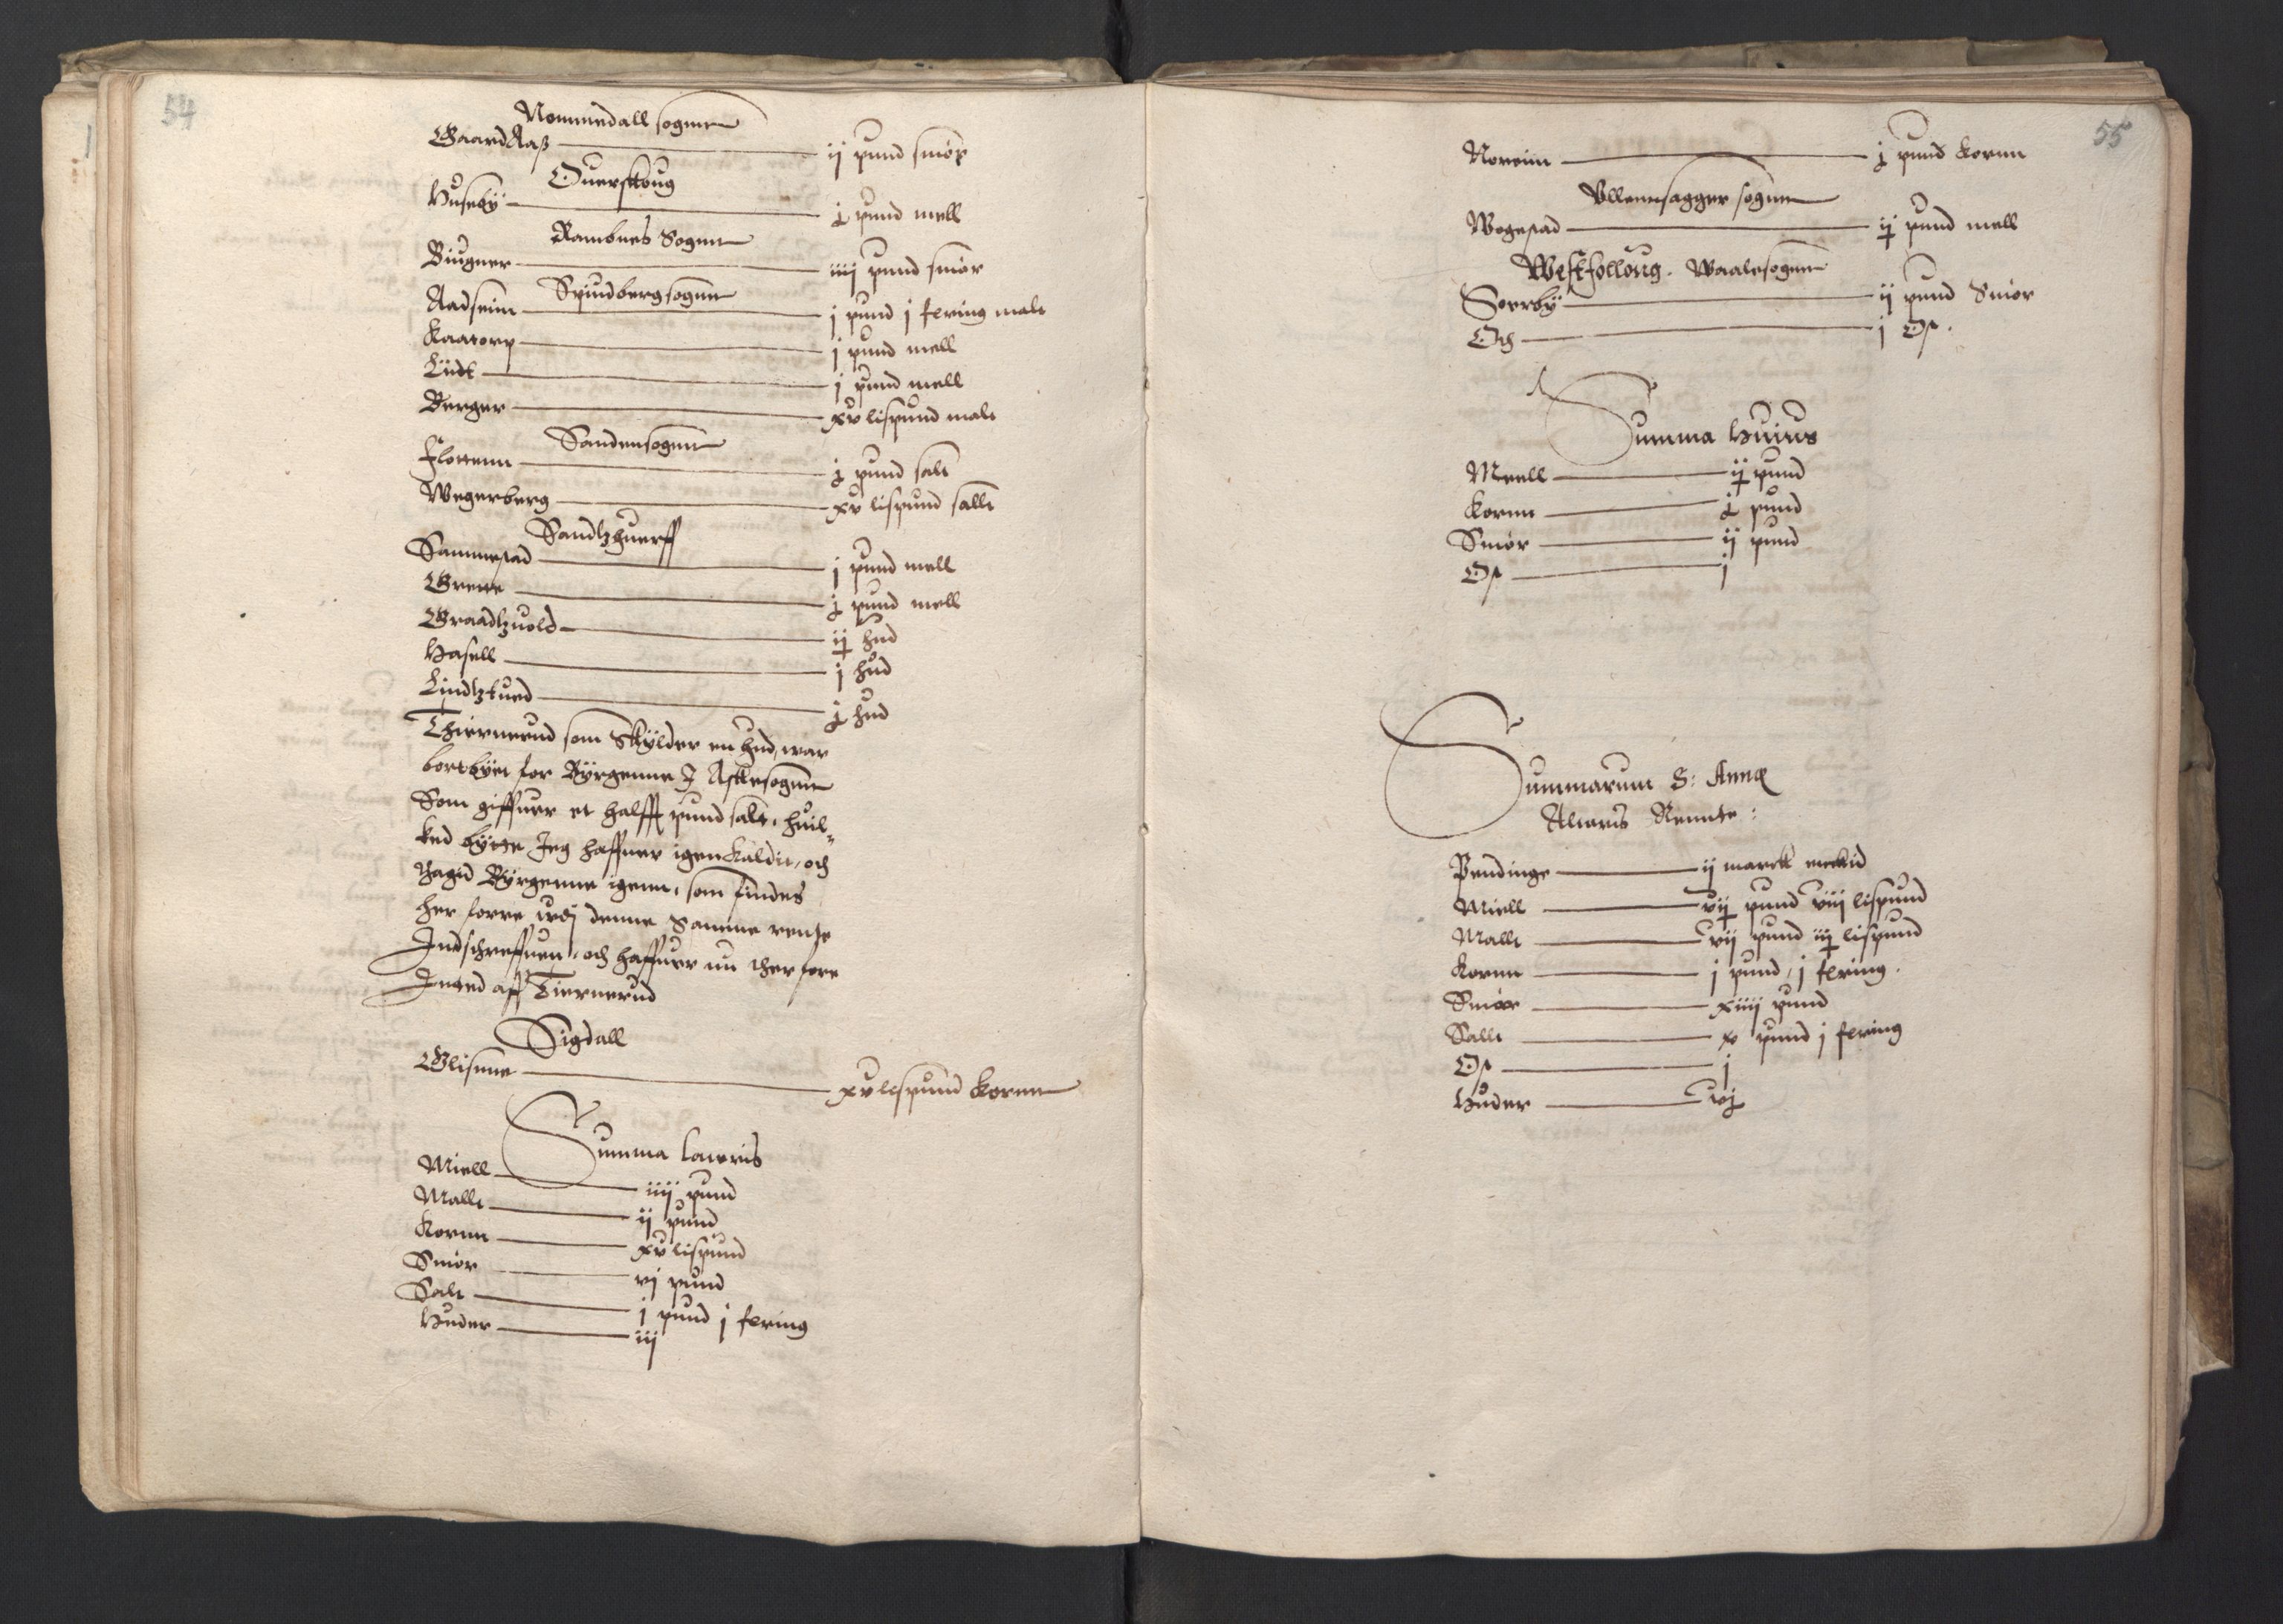 54
Nommedall sognn
Gaard Aas ij pund smör
Ouerskoug
Huseby j pund mell
Ramsnes Sognn
Biugner iiij pund smör
Spindbergsognn
Aadseim j pund j fering malt
Kaatorp j pund mell
Lindt j pund mell
Berger xv lispund malt
Sandensognn
Flottenn j pund salt
Wegerberg xv lispund sallt
Sandtzhuerff
Sammestad j pund mell
Grette j pund mell
Graadtzuold ij hud
Hasell j hud
Lindtztued j hud
Thiernerud som Skylder en hud, war
bortbÿtt for Byrgenne J Askersognn
Som giffuer et halfft pund salt, huil-
ked bytte Jeg haffuer igenkaldit, och
thagid Byrgenne igenn, som findes
her forre wdj denne Samme rente
Indschreffuen, och haffuer nu ther fore
Inted aff Tiernerud
Sigdall
Glisnne xv lispund Kornn
Summa lateris
Miell iiij pund
Mallt ij pund
Kornn xv lispund
Smör vj pund
Salt j pund j fering
Huder iij
55
Noreim j pund kornn
Vllennsagger sognn
Wogestad ij pund mell
Westfolloug. Waalesognn
Sörby ij pund Smör
Och j Ost.
Summa Huius
Meell ij pund
Kornn j pund
Smör ij pund
Ost j
Summarum S: Annæ
Altaris Rennte:
Pendinge ij marck
Miell vij pund viij lispund
Malt vij pund iij lispund
Kornn j pund, j fering.
Smör xiiij pund
Sallt x pund j fering
Ost j
Huder vj